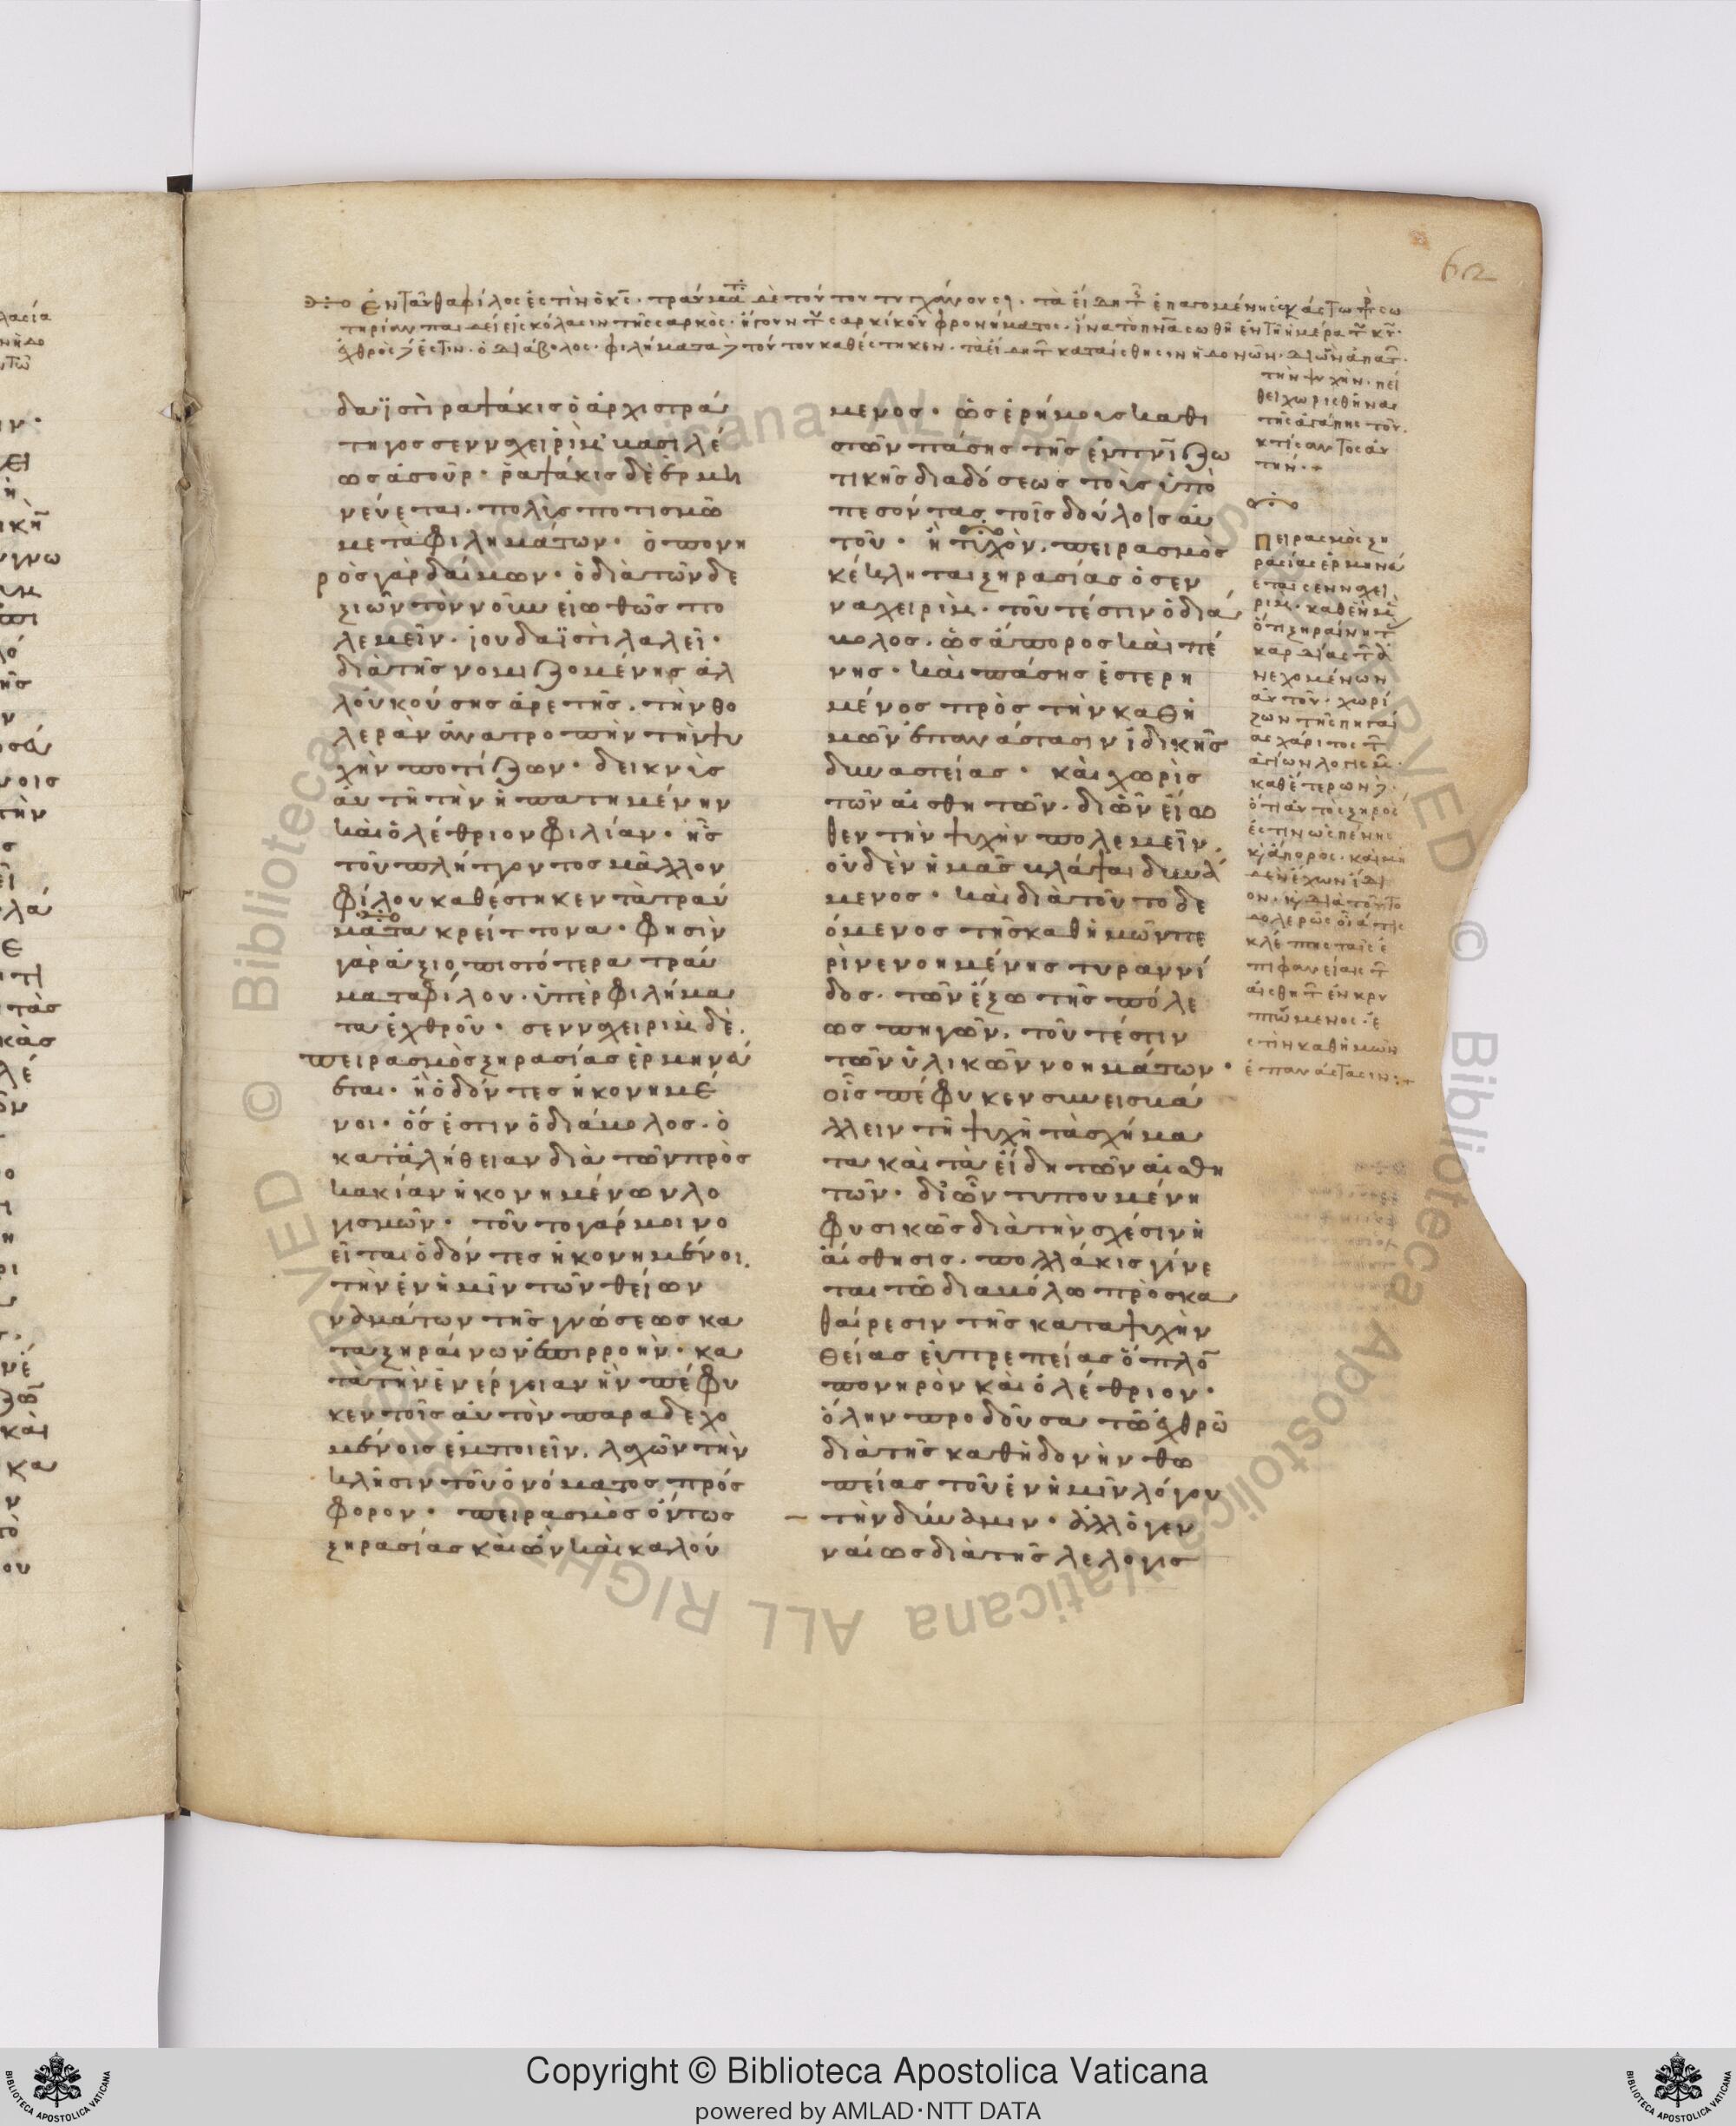 62
Ἐνταῦθα φίλος ἐστὶν ὁ κς̄· τραύματα δὲ τούτου τυγχάνουσι· τὰ εἴδη τ ἐπαγομένης ἑκάστω πρ σω
τηρίαν παιδείεις κόλασιν τῆς σαρκὸς· ἤγουν τ σαρκικοῦ φρονήματος· ἵνα τὸ πνᾶ σωθῆ ἐν τῆ ἡμέρα τ κυ·
ἐχθρὸς δ ἐστὶν· ὁ διάβολος· φιλήματα δ τούτου καθέστηκεν· τὰ εἴδη τ κατ αἴσθησιν ἡδονῶν· δι ὧν ἀπατ
τὴν ψυχὴν· πεί
θει χωρισθῆναι
τῆς ἀγάπης τοῦ
κτίσαντος αὐ
τήν·
δαϊστὶ ραψάκις ὁ ἀρχιστρά
τηγος σενναχειρὶμ βασιλέ
ως ἀσούρ· ῥαψάκις δὲ ἑρμη
νεύεται· πολὺς ποτισμῶ
μετὰ φιλημάτων· ὁ πονη
ρὸς γὰρ δαίμων· ὁ διὰ τῶν δε
ξιῶν τὸν νοῦν εἰωθὼς πο
λεμεῖν· ἰουδαϊστὶ λαλεῖ·
διὰ τῆς νομιζομένης ἀλ
λ' οὐκ οὔσης ἀρετῆς· τὴν θο
λερὰν ἀνατροπὴν τὴν ψυ
χὴν ποτίζων· δεικνὺς
αὐτῆ τὴν ἠπατημένην
καὶ ὀλέθριον φιλίαν· ἧς
τοῦ πλήττοντος μᾶλλον
φίλου καθέστηκεν τὰ τραύ
ματα κρείττονα· φησὶν
γὰρ ἀξιοπιστότερα τραύ
ματα φίλου· ὑπὲρ φιλήμα
τα ἐχθροῦ· σενναχειρὶμ δὲ·
πειρασμὸς ξηρασίας ἑρμηνεύ
εται· ἢ ὀδόντες ἠκονημέ
νοι· ὅς ἐστιν ὁ διάβολος· ὁ
κατ' ἀλήθειαν διὰ τῶν πρὸς
κακίαν ἠκονημένων λο
γισμῶν· τοῦτο γάρ μοι νο
εῖται ὀδόντες ἠκονημένοι·
τὴν ἐν ἡμῖν τῶν θείων
ναμάτων τῆς γνώσεως κα
ταξηραίνων ἐπιρροὴν· κα
τὰ τὴν ἐνέργειαν ἣν πέφυ
κεν τοῖς αὐτὸν παραδεχο
μένοις ἐμποιεῖν· λαχὼν τὴν
κλῆσιν τοῦ ὀνόματος πρόσ
φορον· πειρασμὸς ὄντως
ξηρασίας καὶ ὢν καὶ καλού
μενος· ὡς ἐρήμους καθι
στῶν πάσης τῆς ἐν πνι ζω
τικῆς διαδόσεως τοὺς ὑπο
πεσόντας τοῖς δούλοις αὐ
τοῦ· ἢ τυχὸν· πειρασμὸς
κέκληται ξηρασίας ὁ σεν
ναχειρὶμ· τουτέστιν ὁ διά
βολος· ὡς ἄπορος καὶ πέ
νης· καὶ πάσης ἐστερη
μένος πρὸς τὴν καθ' ἡ
μῶν ἐπανάστασιν ἰδικῆς
δυναστείας· καὶ χωρὶς
τῶν αἰσθητῶν· δι ὧν εἴω
θεν τὴν ψυχὴν πολεμεῖν·
οὐδὲν ἡμᾶς βλάψαι δυνά
μενος· καὶ διὰ τοῦτο δε
όμενος τῆς καθ ἡμῶν πε
ρινενοημένης τυραννί
δος· τῶν ἔξω τῆς πόλε
ως πηγῶν· τουτέστιν
τῶν ὑλικῶν νοημάτων·
οἷς πέφυκεν συνεισβά
λλειν τῆ ψυχῆ τὰ σχήμα
τα καὶ τὰ εἴδη τῶν αἰσθη
τῶν· δι ὧν τυπουμένη
φυσικῶς διὰ τὴν σχέσιν ἡ
αἴσθησις· πολλάκις γίνε
ται τῶ διαβόλω πρὸς κα
θαίρεσιν τῆς κατὰ ψυχὴν
θείας εὐπρεπείας ὅπλο
πονηρὸν καὶ ὀλέθριον·
ὅλην προδοῦσα τῶ ἐχθρῶ
διὰ τῆς καθ ἡδονὴν θω
πείας τοῦ ἐν ἡμῖν λόγου
τὴν δύναμιν· ἀλλ' ὁ γεν
ναίως διὰ τῆς λελογισ
Πειρασμὸς ξη
ρασίας ἑρμηνεύ
εται σενναχει
ρὶμ· καθ ἓν μ
ὅτι ξηραίνη τ
καρδίας τ δε
χομένων
αὐτοῦ· χωρί
ζων τῆς πηγαί
ας χάριτος τ
ἁγίων λογισμ·
καθ' ἕτερον δ·
ὅτι αὐτὸς ξηρός
ἐστιν ὡς πένης
κ ἄπορος· καὶ μη
δὲν ἔχων ἴδι
ον· κ διὰ τοῦτο
δολερῶς οἷά τις
κλέπτης ταῖς ἐ
πιφανείαις τ
αἰσθητ ἐν κρυ
πτόμενος· ἐ
στὶν καθ ἡμῶν
ἐπανάστασιν·